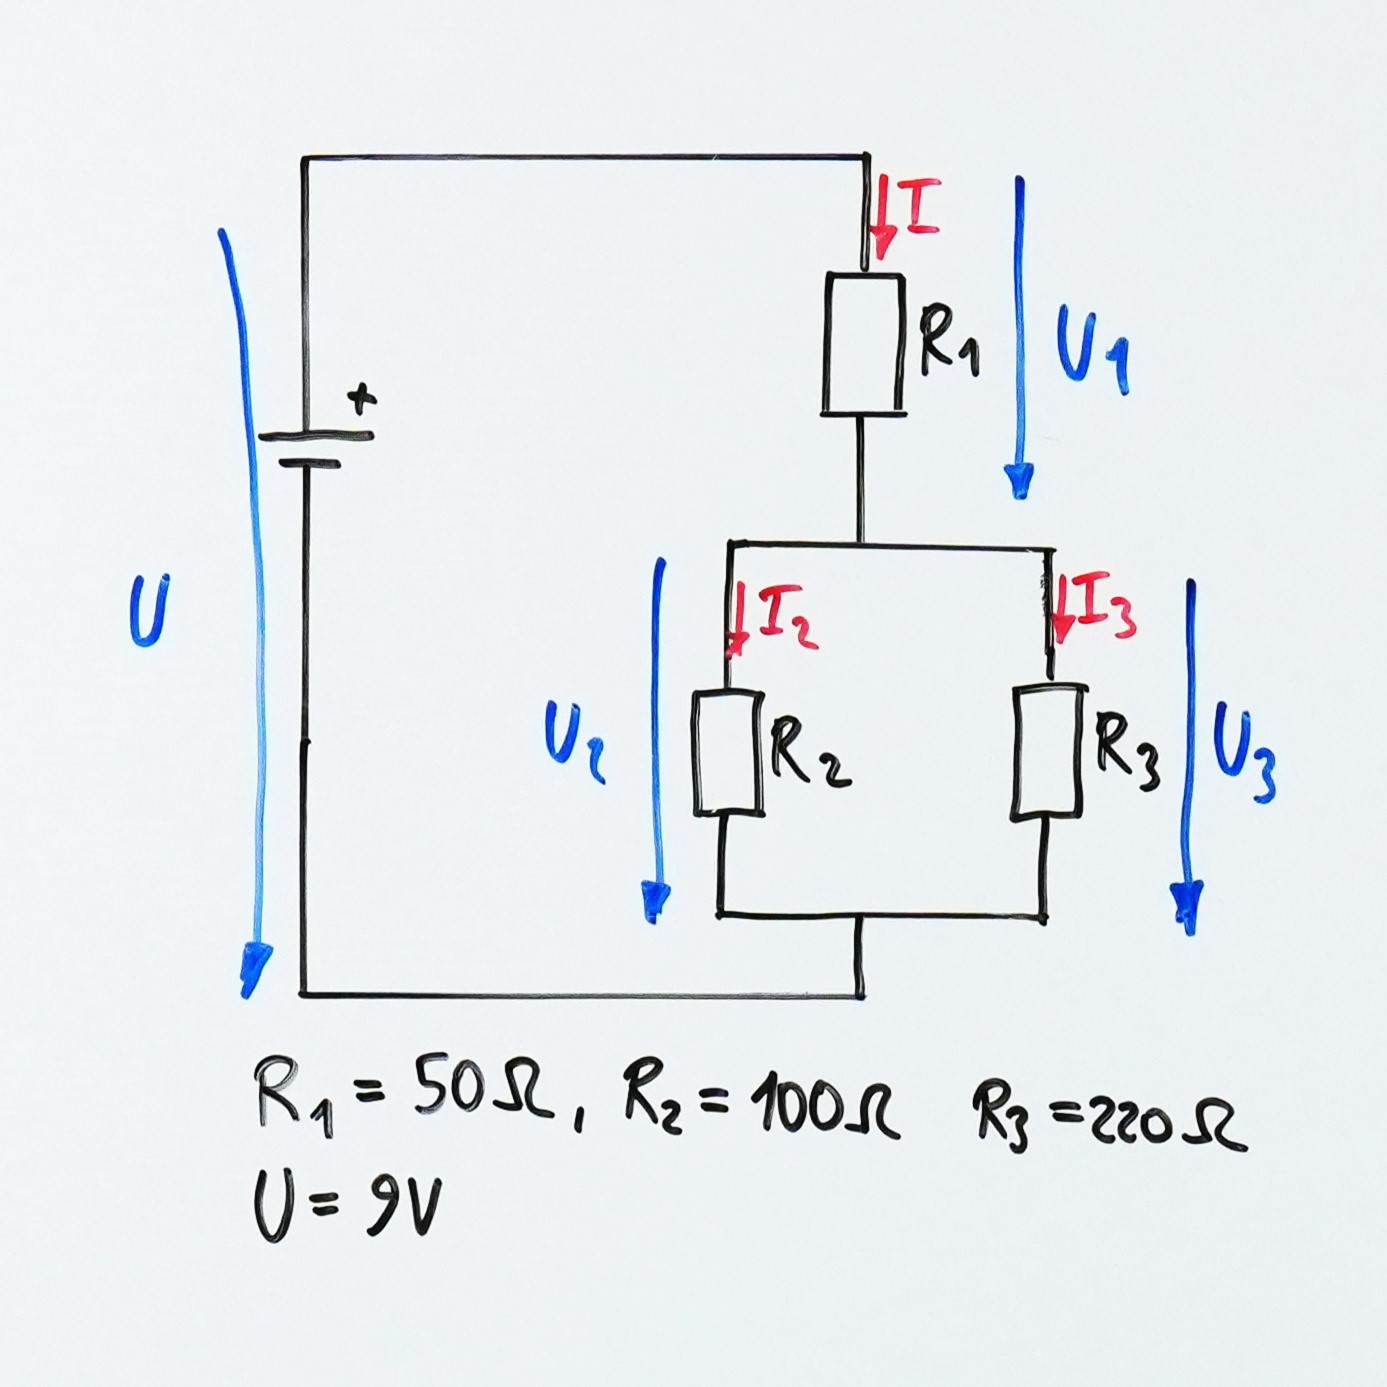 +
I
R₁
U₁
U
I₂
I₃
U₂
R₂
R₃
U₃
R₁ = 50Ω, R₂ = 100Ω R₃ = 220Ω
U = 9V